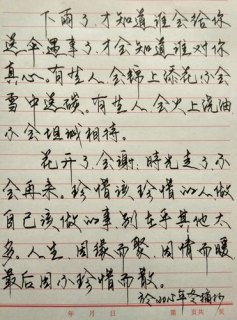 下雨了才知道谁会给你
送伞遇事了才会知道谁对你
真心。有些人会锦上添花不会
雪中送碳。有些人会火上浇油
不会坦诚相待。
花开了会谢，時光走了不
会再来。珍惜该珍惜的人做
自己该做的事别在乎其他太
多。人生，因缘而聚，因情而暖
最后因不珍惜而散。
於2015年冬摘抄
年 月 日 第 页共 页